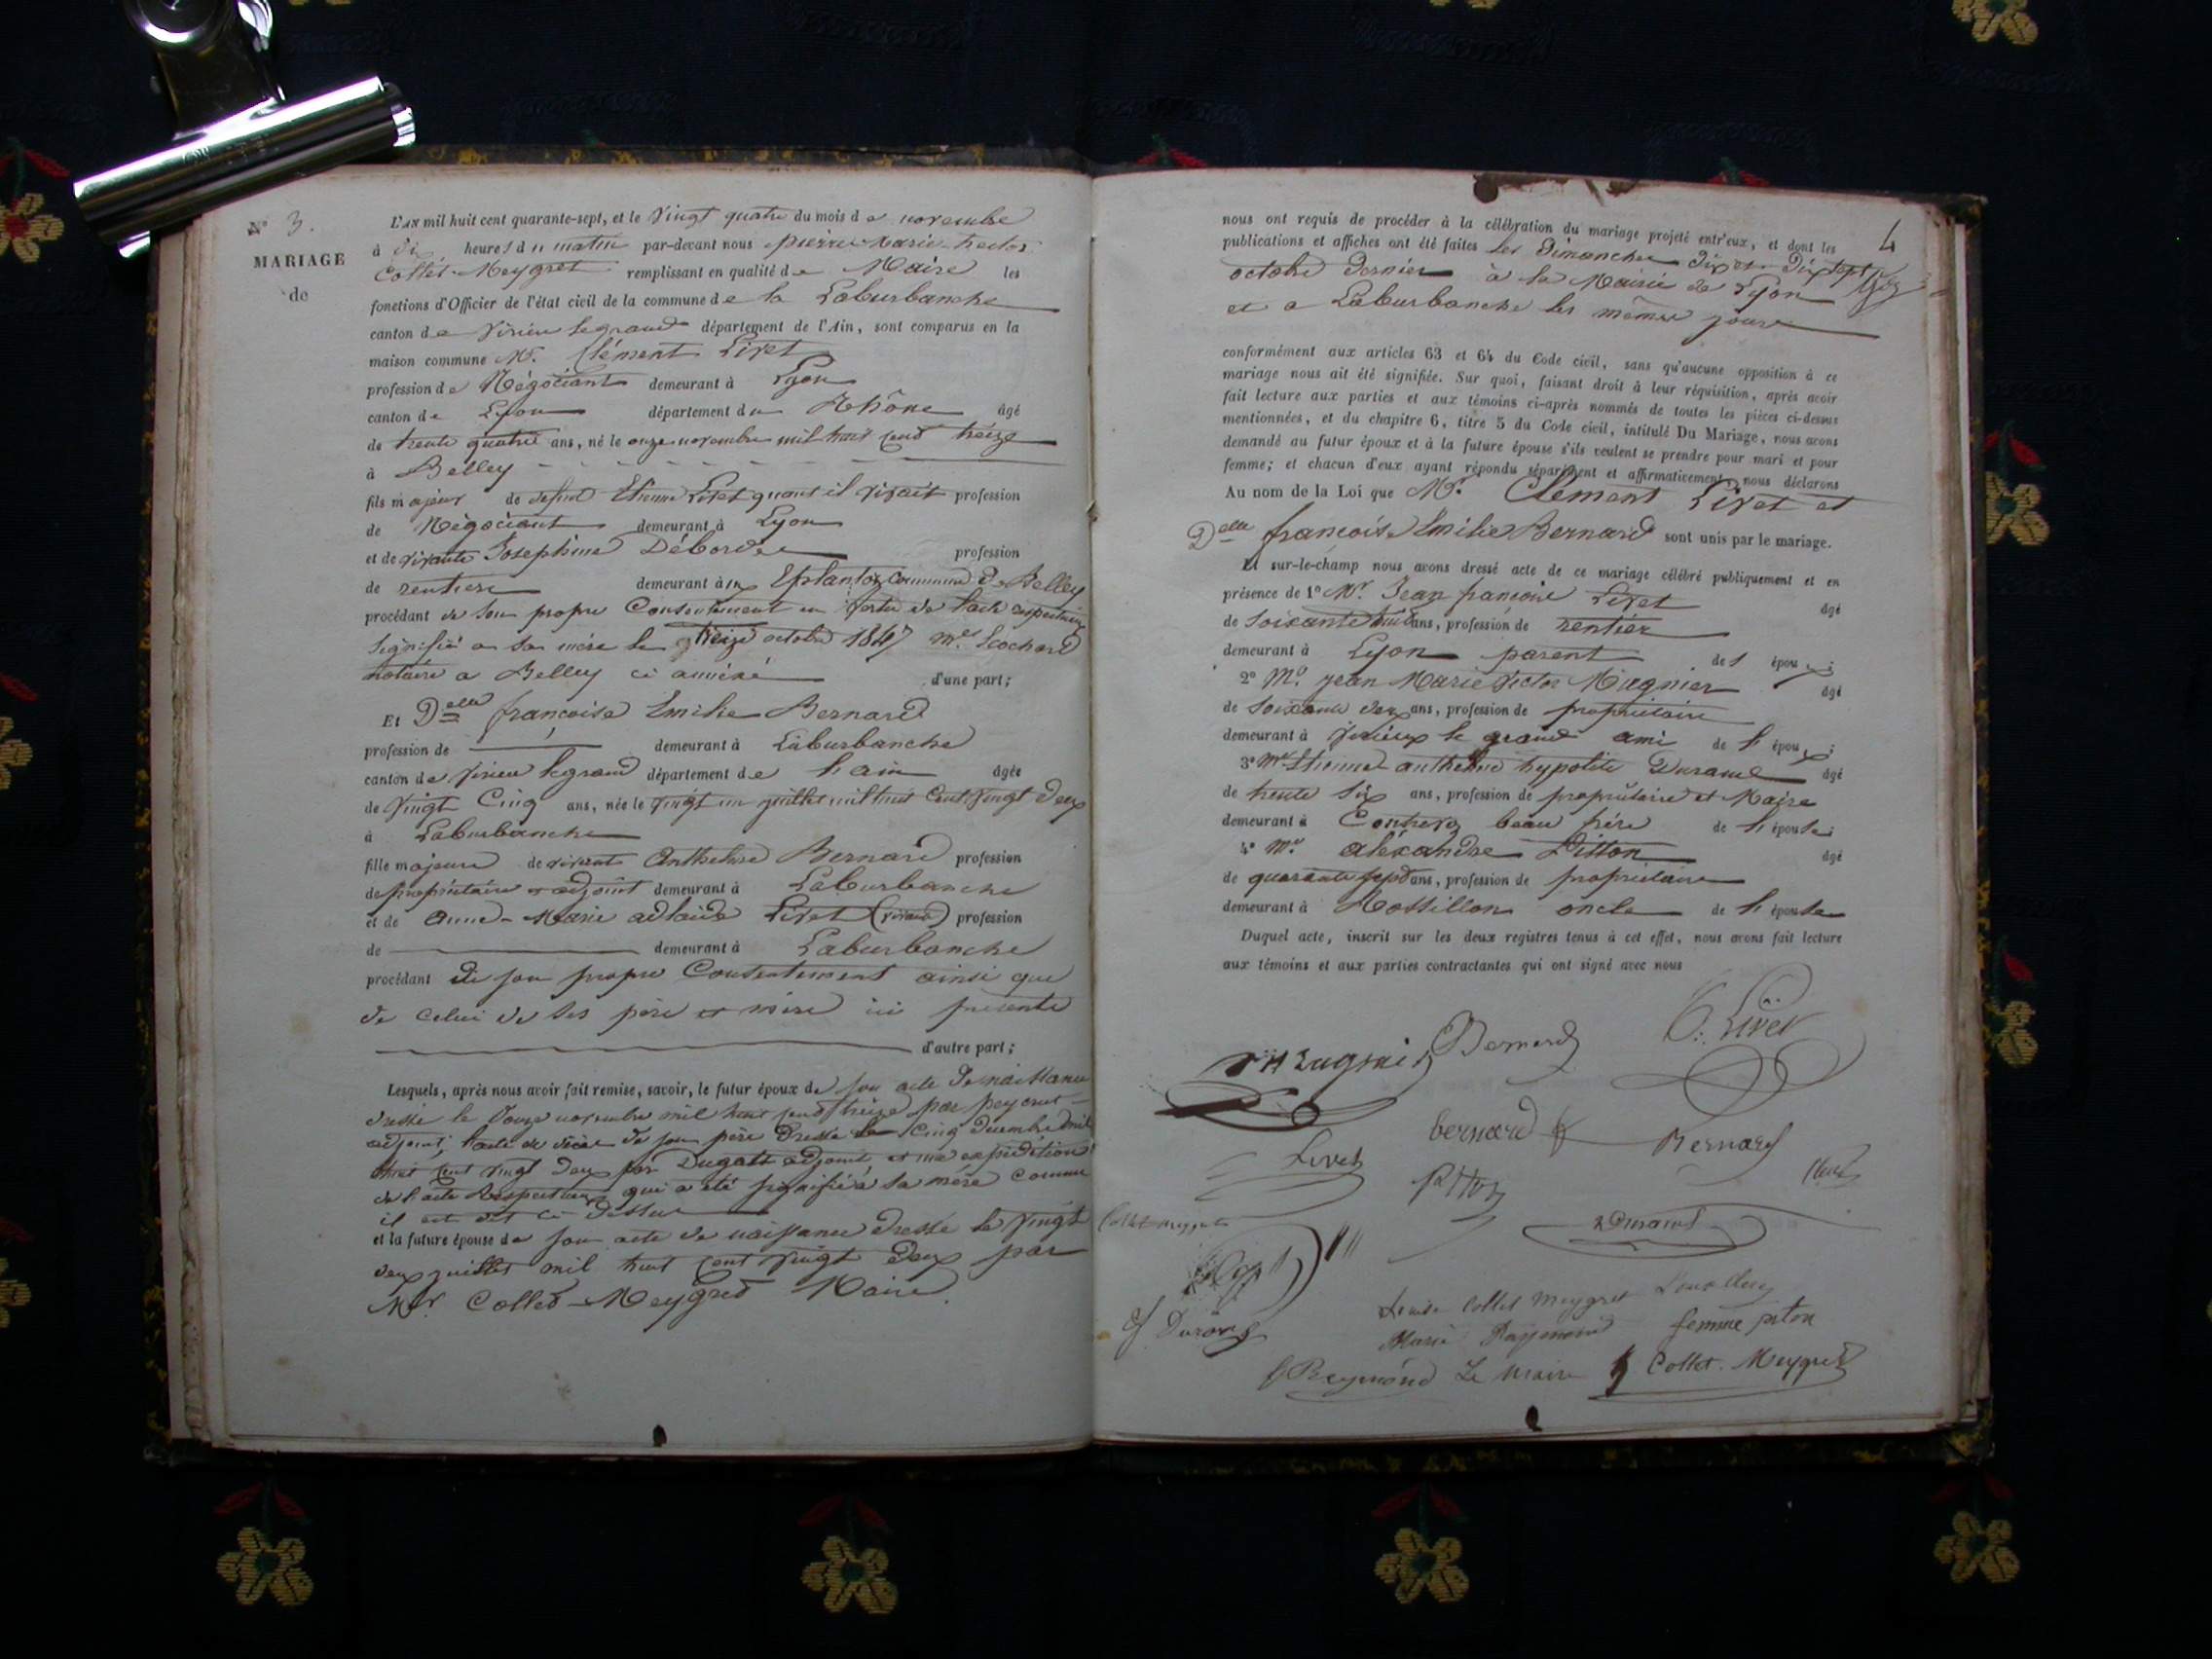 N° 3.
MARIAGE
de
L'AN mil huit cent quarante-sept, et le vingt quatre du mois de novembre
à dix heures du matin par-devant nous pierre Marie hector
Collet-Meygret remplissant en qualité de Maire les
fonctions d'Officier de l'état civil de la commune de la Laburbanche
canton de Virieu legrand département de l'Ain, sont comparus en la
maison commune Mr. Clément Livet
profession de Négociant demeurant à Lyon
canton de Lyon département du Rhône âgé
de trente quatre ans, né le onze novembre mil huit cent treize
à Belley
fils majeur de defunt Etienne Livet quant il vivait profession
de Négociant demeurant à Lyon
et de vivante Josephine Débordes profession
de rentiere demeurant à commune de Belley
procédant de son propre Consentement en vertu de l'acte respectueux
signifié a sa mère le treize octobre 1847 me
notaire a Belley ci annéxé d'une part;
Et Delle françoise Emilie Bernard
profession de demeurant à Laburbanche
canton de virieu legrand département de l'ain âgée
de vingt Cinq ans, née le vingt un juillet mil huit Cent vingt deux
à Laburbanche
fille majeure de vivant Anthelme Bernard profession
de propriétaire et adjoint demeurant à Laburbanche
et de Anne-Marie adlaide Livet (vivand) profession
de demeurant à Laburbanche
procédant de son propre Consentement ainsi que
de celui de ses père et mère ici présents
d'autre part;
Lesquels, après nous avoir fait remise, savoir, le futur époux de son acte de naissance
dressé le douze novembre mil huit cent treize par
adjoint, l'acte de décès de son père dressé le cinq decembre mil
huit cent vingt deux par Dugast adjoint et une expédition
de l'acte Respectueux qui a été signifié à sa mère comme
il est dit ci dessus
et la future épouse de son acte de naissance dressé le vingt
deux juillet mil huit cent vingt deux par
Mr Collet-Meygret Maire
4
nous ont requis de procéder à la célébration du mariage projeté entr'eux, et dont les
publications et affiches ont été faites les Dimanches dix et dix sept
octobre dernier à la Mairie de Lyon
et a Laburbanche les mêmes jours
conformément aux articles 63 et 64 du Code civil, sans qu'aucune opposition à ce
mariage nous ait été signifiée. Sur quoi, faisant droit à leur réquisition, après avoir
fait lecture aux parties et aux témoins ci-après nommés de toutes les pièces ci-dessus
mentionnées, et du chapitre 6, titre 5 du Code civil, intitulé Du Mariage, nous avons
demandé au futur époux et à la future épouse s'ils veulent se prendre pour mari et pour
femme; et chacun d'eux ayant répondu séparément et affirmativement, nous déclarons
Au nom de la Loi que Mr. Clément Livet et
Delle françoise Emilie Bernard sont unis par le mariage.
Et sur-le-champ nous avons dressé acte de ce mariage célébré publiquement et en
présence de 1° Mr. Jean françois Livet âgé
de soixante huit ans, profession de rentier
demeurant à Lyon parent des époux;
2° Mr. jean Marie Victor Mugnier âgé
de soixante deux ans, profession de propriétaire
demeurant à Virieux le grand ami de l'époux;
3° Mr Etienne anthelme hypolite Durand âgé
de trente six ans, profession de propriétaire et Maire
demeurant à Contrevoz beau frère de l'épouse;
4° Mr. aléxandre Pitton âgé
de quarante sept ans, profession de propriétaire
demeurant à Rossillon oncle de l'épouse
Duquel acte, inscrit sur les deux registres tenus à cet effet, nous avons fait lecture
aux témoins et aux parties contractantes qui ont signé avec nous
Bernard C. Livet
bernard Bernard
Livet Pitton
Collet-Meygret Durand
Louise Collet Meygret
Durand Marie Raymond femme piton
Reymond Le Maire Collet-Meygret